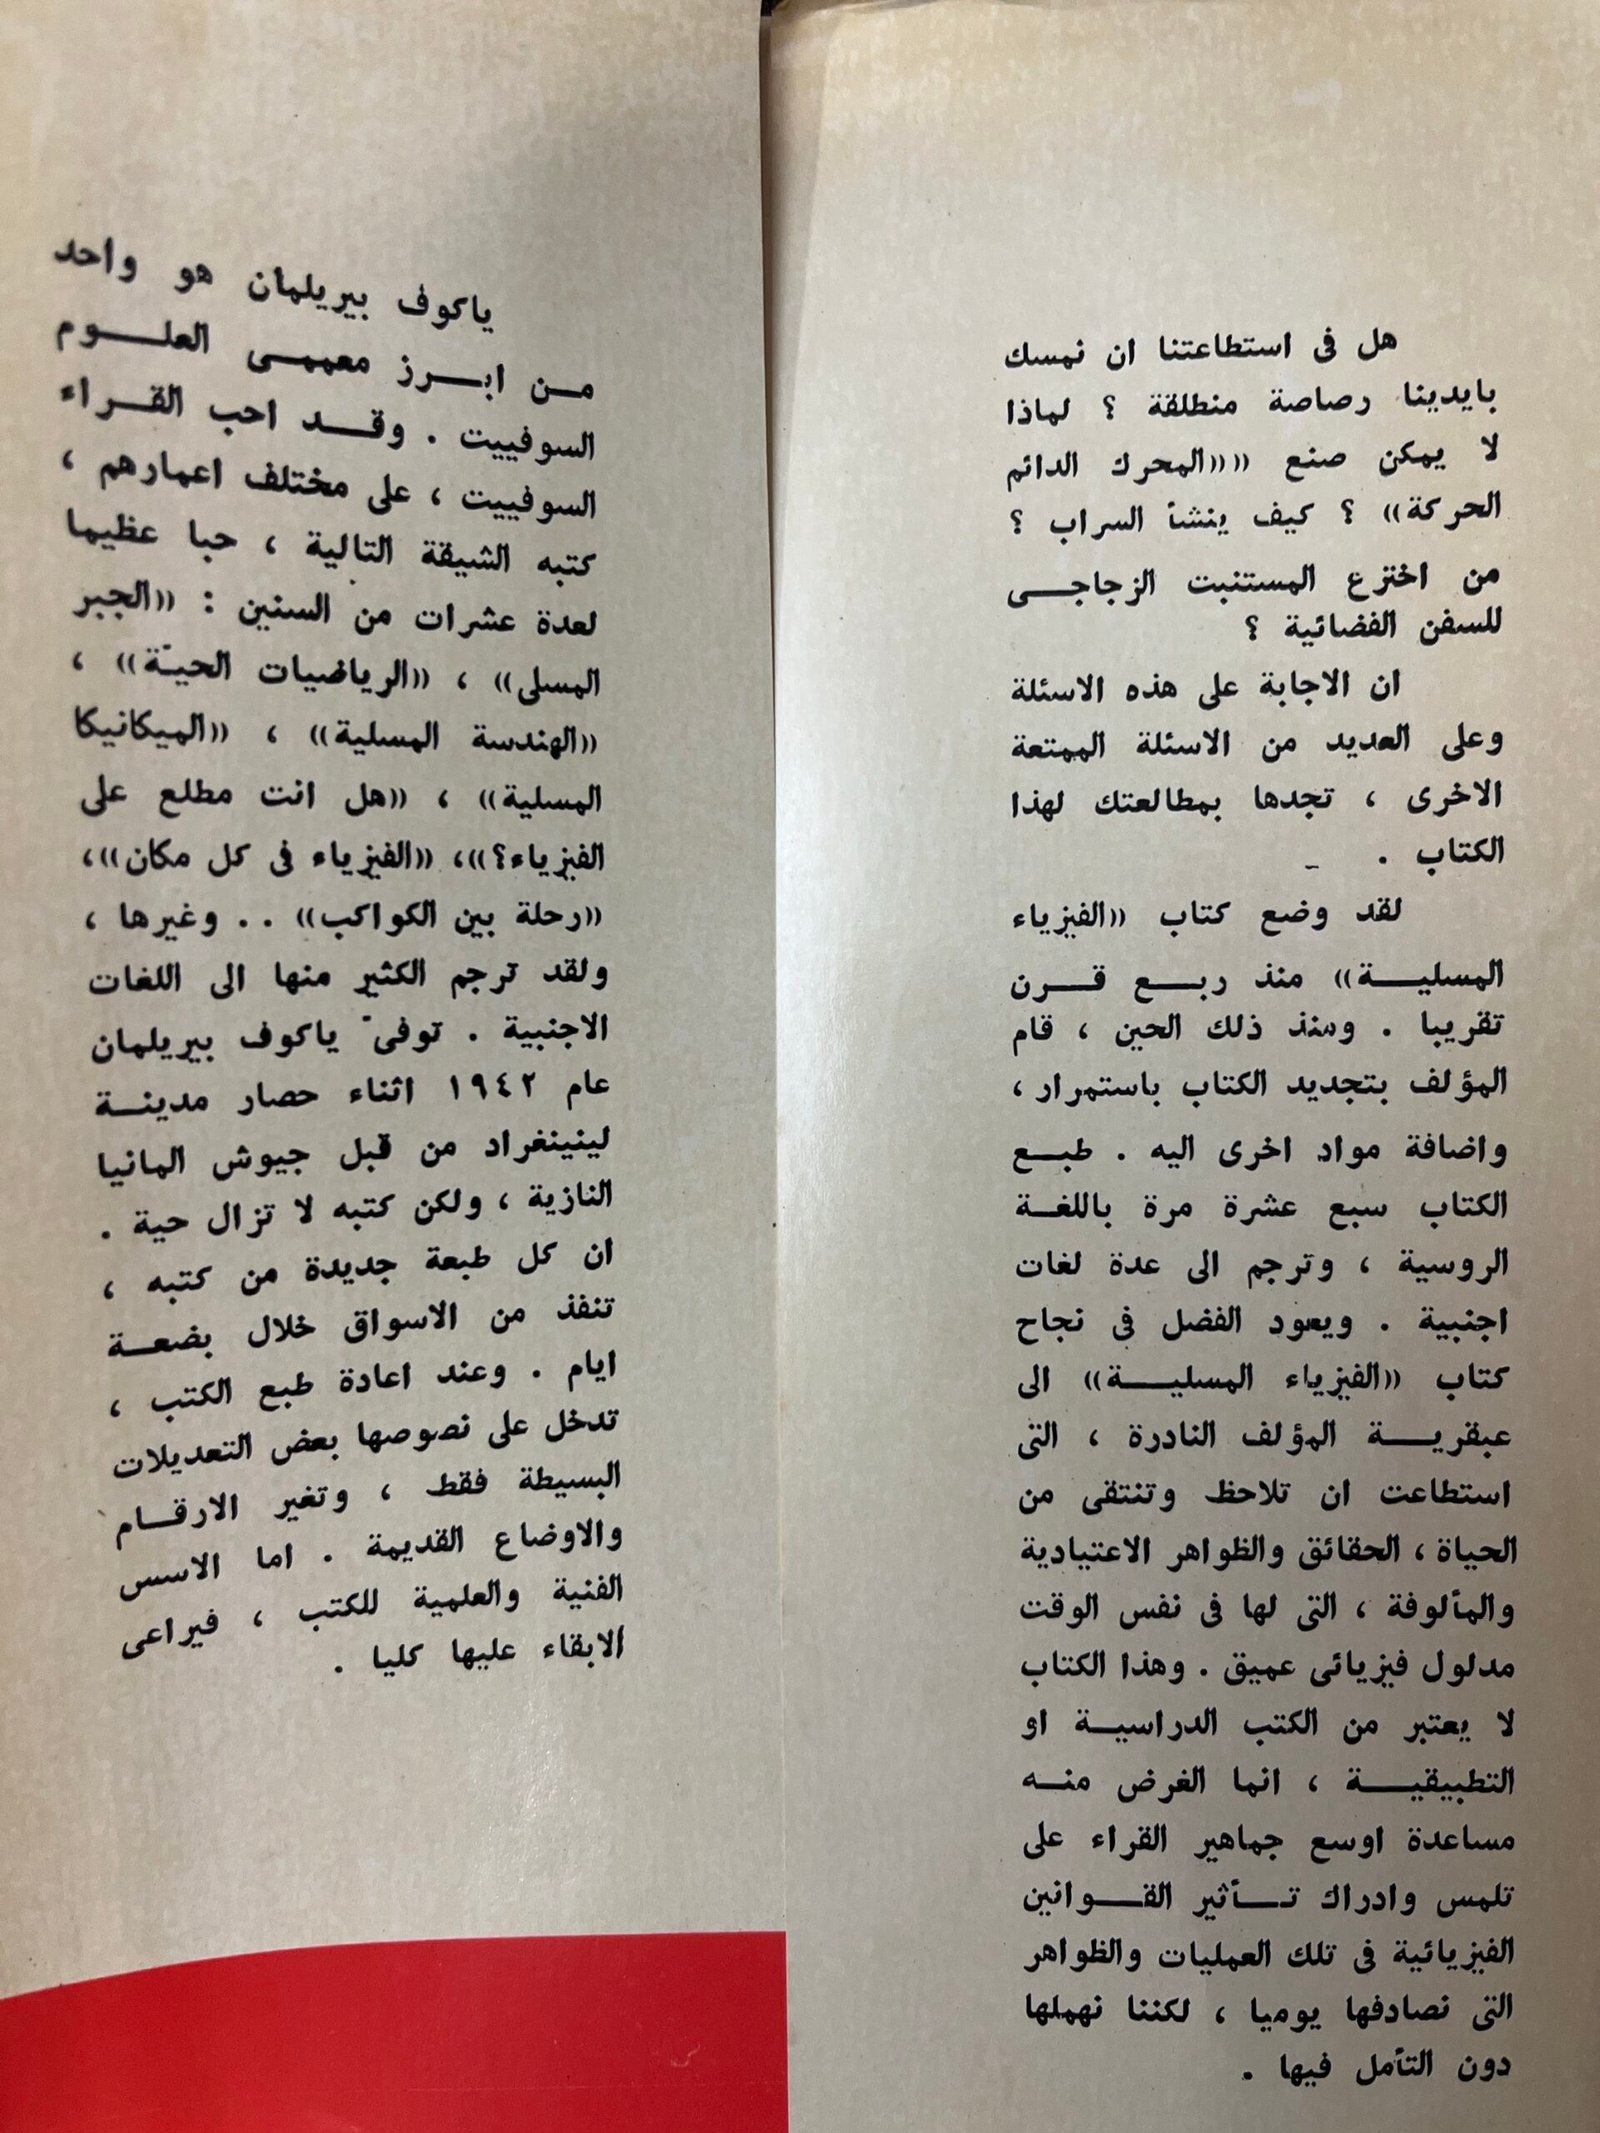 هل فى استطاعتنا ان نمسك
بايدينا رصاصة منطلقة ؟ لماذا
لا يمكن صنع «««المحرك الدائم
الحركة»» ؟ كيف ينشأ السراب ؟
من اخترع المستنبت الزجاجى
للسفن الفضائية ؟
ان الاجابة على هذه الاسئلة
وعلى العديد من الاسئلة الممتعة
الاخرى ، تجدها بمطالعتك لهذا
الكتاب .
لقد وضع كتاب ««الفيزياء
المسلية»» منذ ربع قرن
تقريبا . ومنذ ذلك الحين ، قام
المؤلف بتجديد الكتاب باستمرار ،
واضافة مواد اخرى اليه . طبع
الكتاب سبع عشرة مرة باللغة
الروسية ، وترجم الى عدة لغات
اجنبية . ويعود الفضل فى نجاح
كتاب ««الفيزياء المسلية»» الى
عبقرية المؤلف النادرة ، التى
استطاعت ان تلاحظ وتنتقى من
الحياة ، الحقائق والظواهر الاعتيادية
والمألوفة ، التى لها فى نفس الوقت
مدلول فيزيائى عميق . وهذا الكتاب
لا يعتبر من الكتب الدراسية او
التطبيقية ، انما الغرض منه
مساعدة اوسع جماهير القراء على
تلمس وادراك تأثير القوانين
الفيزيائية فى تلك العمليات والظواهر
التى نصادفها يوميا ، لكننا نهملها
دون التأمل فيها .
ياكوف بيريلمان هو واحد
من ابرز معممى العلوم
السوفييت . وقد احب القراء
السوفييت ، على مختلف اعمارهم ،
كتبه الشيقة التالية ، حبا عظيما
لعدة عشرات من السنين : ««الجبر
المسلى»» ، ««الرياضيات الحيّة»» ،
««الهندسة المسلية»» ، ««الميكانيكا
المسلية»» ، ««هل انت مطلع على
الفيزياء؟»»، ««الفيزياء فى كل مكان»»،
««رحلة بين الكواكب»» .. وغيرها ،
ولقد ترجم الكثير منها الى اللغات
الاجنبية . توفىّ ياكوف بيريلمان
عام ١٩٤٢ اثناء حصار مدينة
لينينغراد من قبل جيوش المانيا
النازية ، ولكن كتبه لا تزال حية .
ان كل طبعة جديدة من كتبه ،
تنفذ من الاسواق خلال بضعة
ايام . وعند اعادة طبع الكتب ،
تدخل على نصوصها بعض التعديلات
البسيطة فقط ، وتغير الارقام
والاوضاع القديمة . اما الاسس
الفنية والعلمية للكتب ، فيراعى
الابقاء عليها كليا .